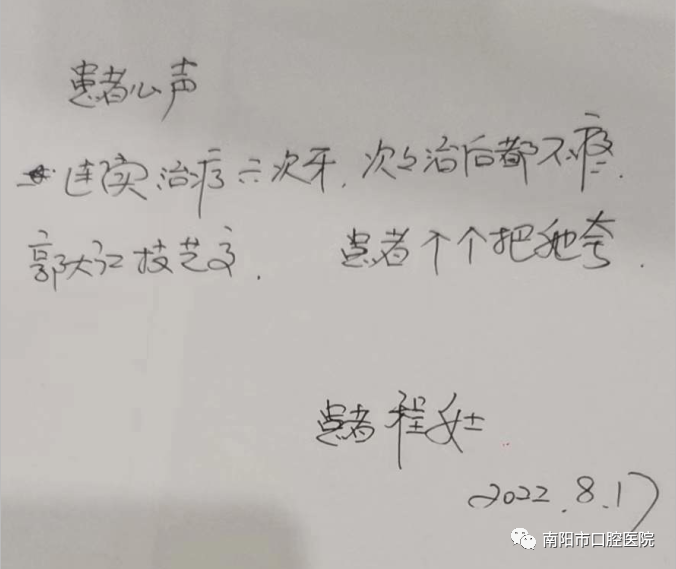 患者心声
连续治疗六次牙,次次治后都不疼.
郭大江技艺高. 患者个个把她夸.
患者 程女士
2022.8.17
南阳市口腔医院